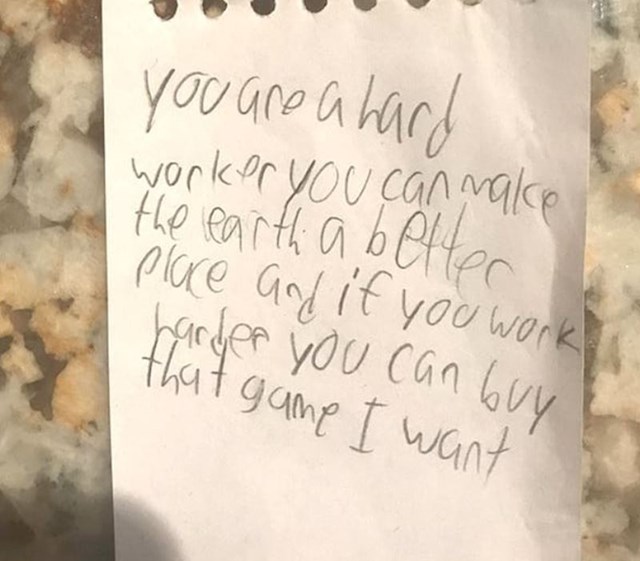 you are a hard
worker you can make
the earth a better
place and if you work
harder you can buy
that game I want